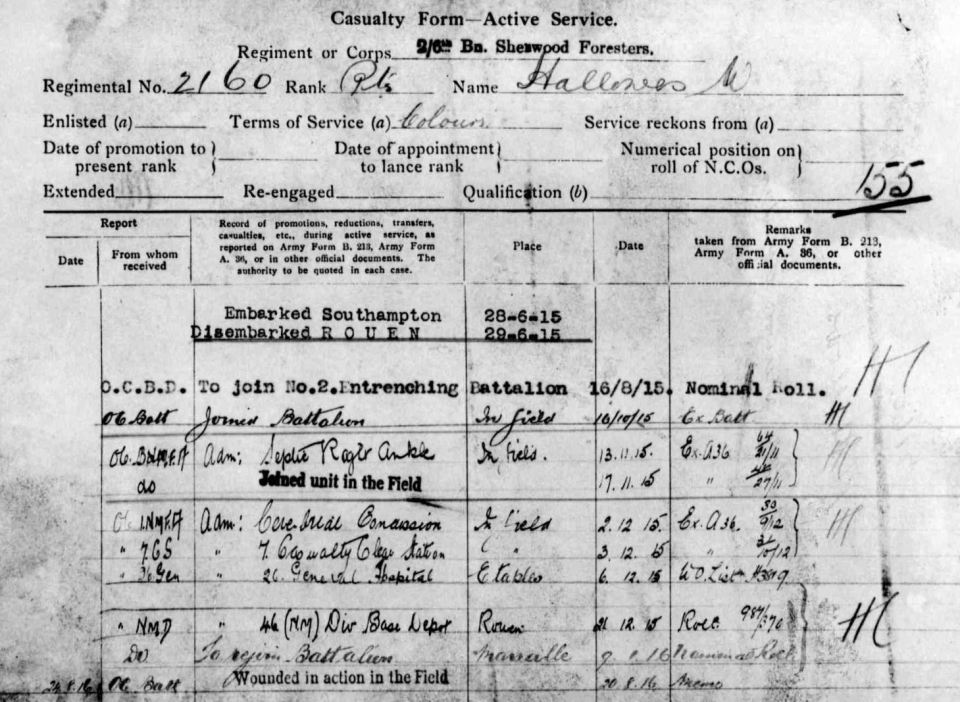 Casualty Form—Active Service.
Regiment or Corps 2/6th Bn. Sherwood Foresters.
Regimental No. 2160 Rank Pte Name Hallowes W
Enlisted (a) Terms of Service (a) Colours Service reckons from (a)
Date of promotion to present rank } Date of appointment to lance rank } Numerical position on roll of N.C.Os. }
155
Extended Re-engaged Qualification (b)
Report
Date
From whom received
Record of promotions, reductions, transfers, casualties, etc., during active service, as reported on Army Form B. 213, Army Form A. 36, or in other official documents. The authority to be quoted in each case.
Place
Date
Remarks taken from Army Form B. 213, Army Form A. 36, or other official documents.
Embarked Southampton 28-6-15
Disembarked ROUEN 29-6-15
O.C.B.D. To join No.2.Entrenching Battalion 16/8/15. Nominal Roll.
OC Batt Joined Battalion In field 16/10/15 Ex Batt
OC Adm: Septic Ankle In field. 13.11.15. Ex. A36
do Joined unit in the Field 17.11.15 " 27/11
OC Adm: Cerebral Concussion In field 2.12.15. Ex. A36.
" 7 CCS " 7 Casualty Clear Station " 3.12.15 " 10/12
" 26 Gen " 26 General Hospital Etaples 6.12.15 WO List
" NMD " 46 (NM) Div Base Depot Rouen 21.12.15 Roll 987/370
Do To rejoin Battalion 16 Nominal Roll
24.8.16 OC Batt Wounded in action in the Field 20.8.16 Memo